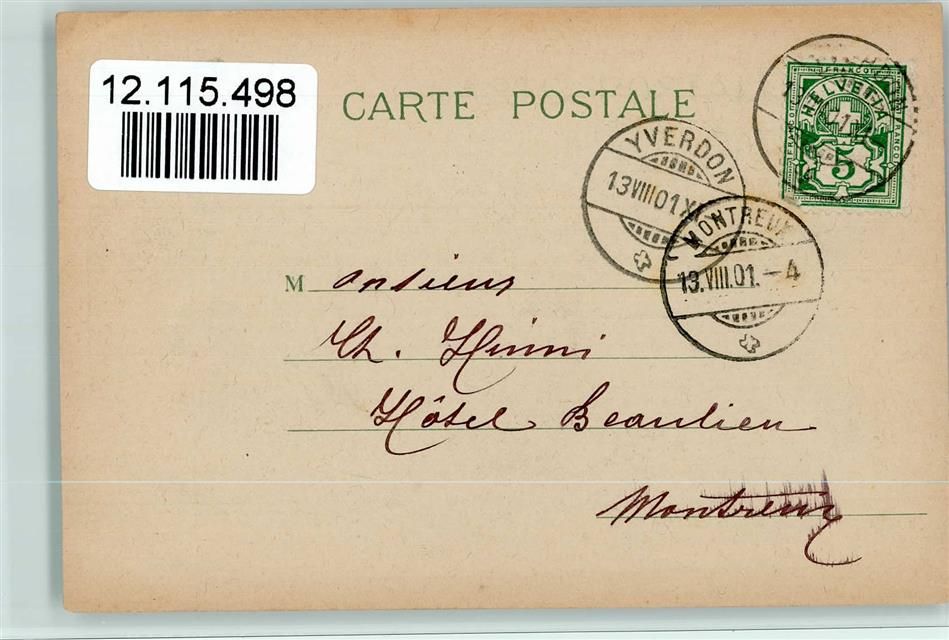 12.115.498
CARTE POSTALE
FRANCO
HELVETIA
FRANCO
FRANCO
5
YVERDON
13 VIII 01 XI
MONTREUX
13.VIII.01.-4
Monsieur
Ch. Hinni
Hôtel Beaulieu
Montreux